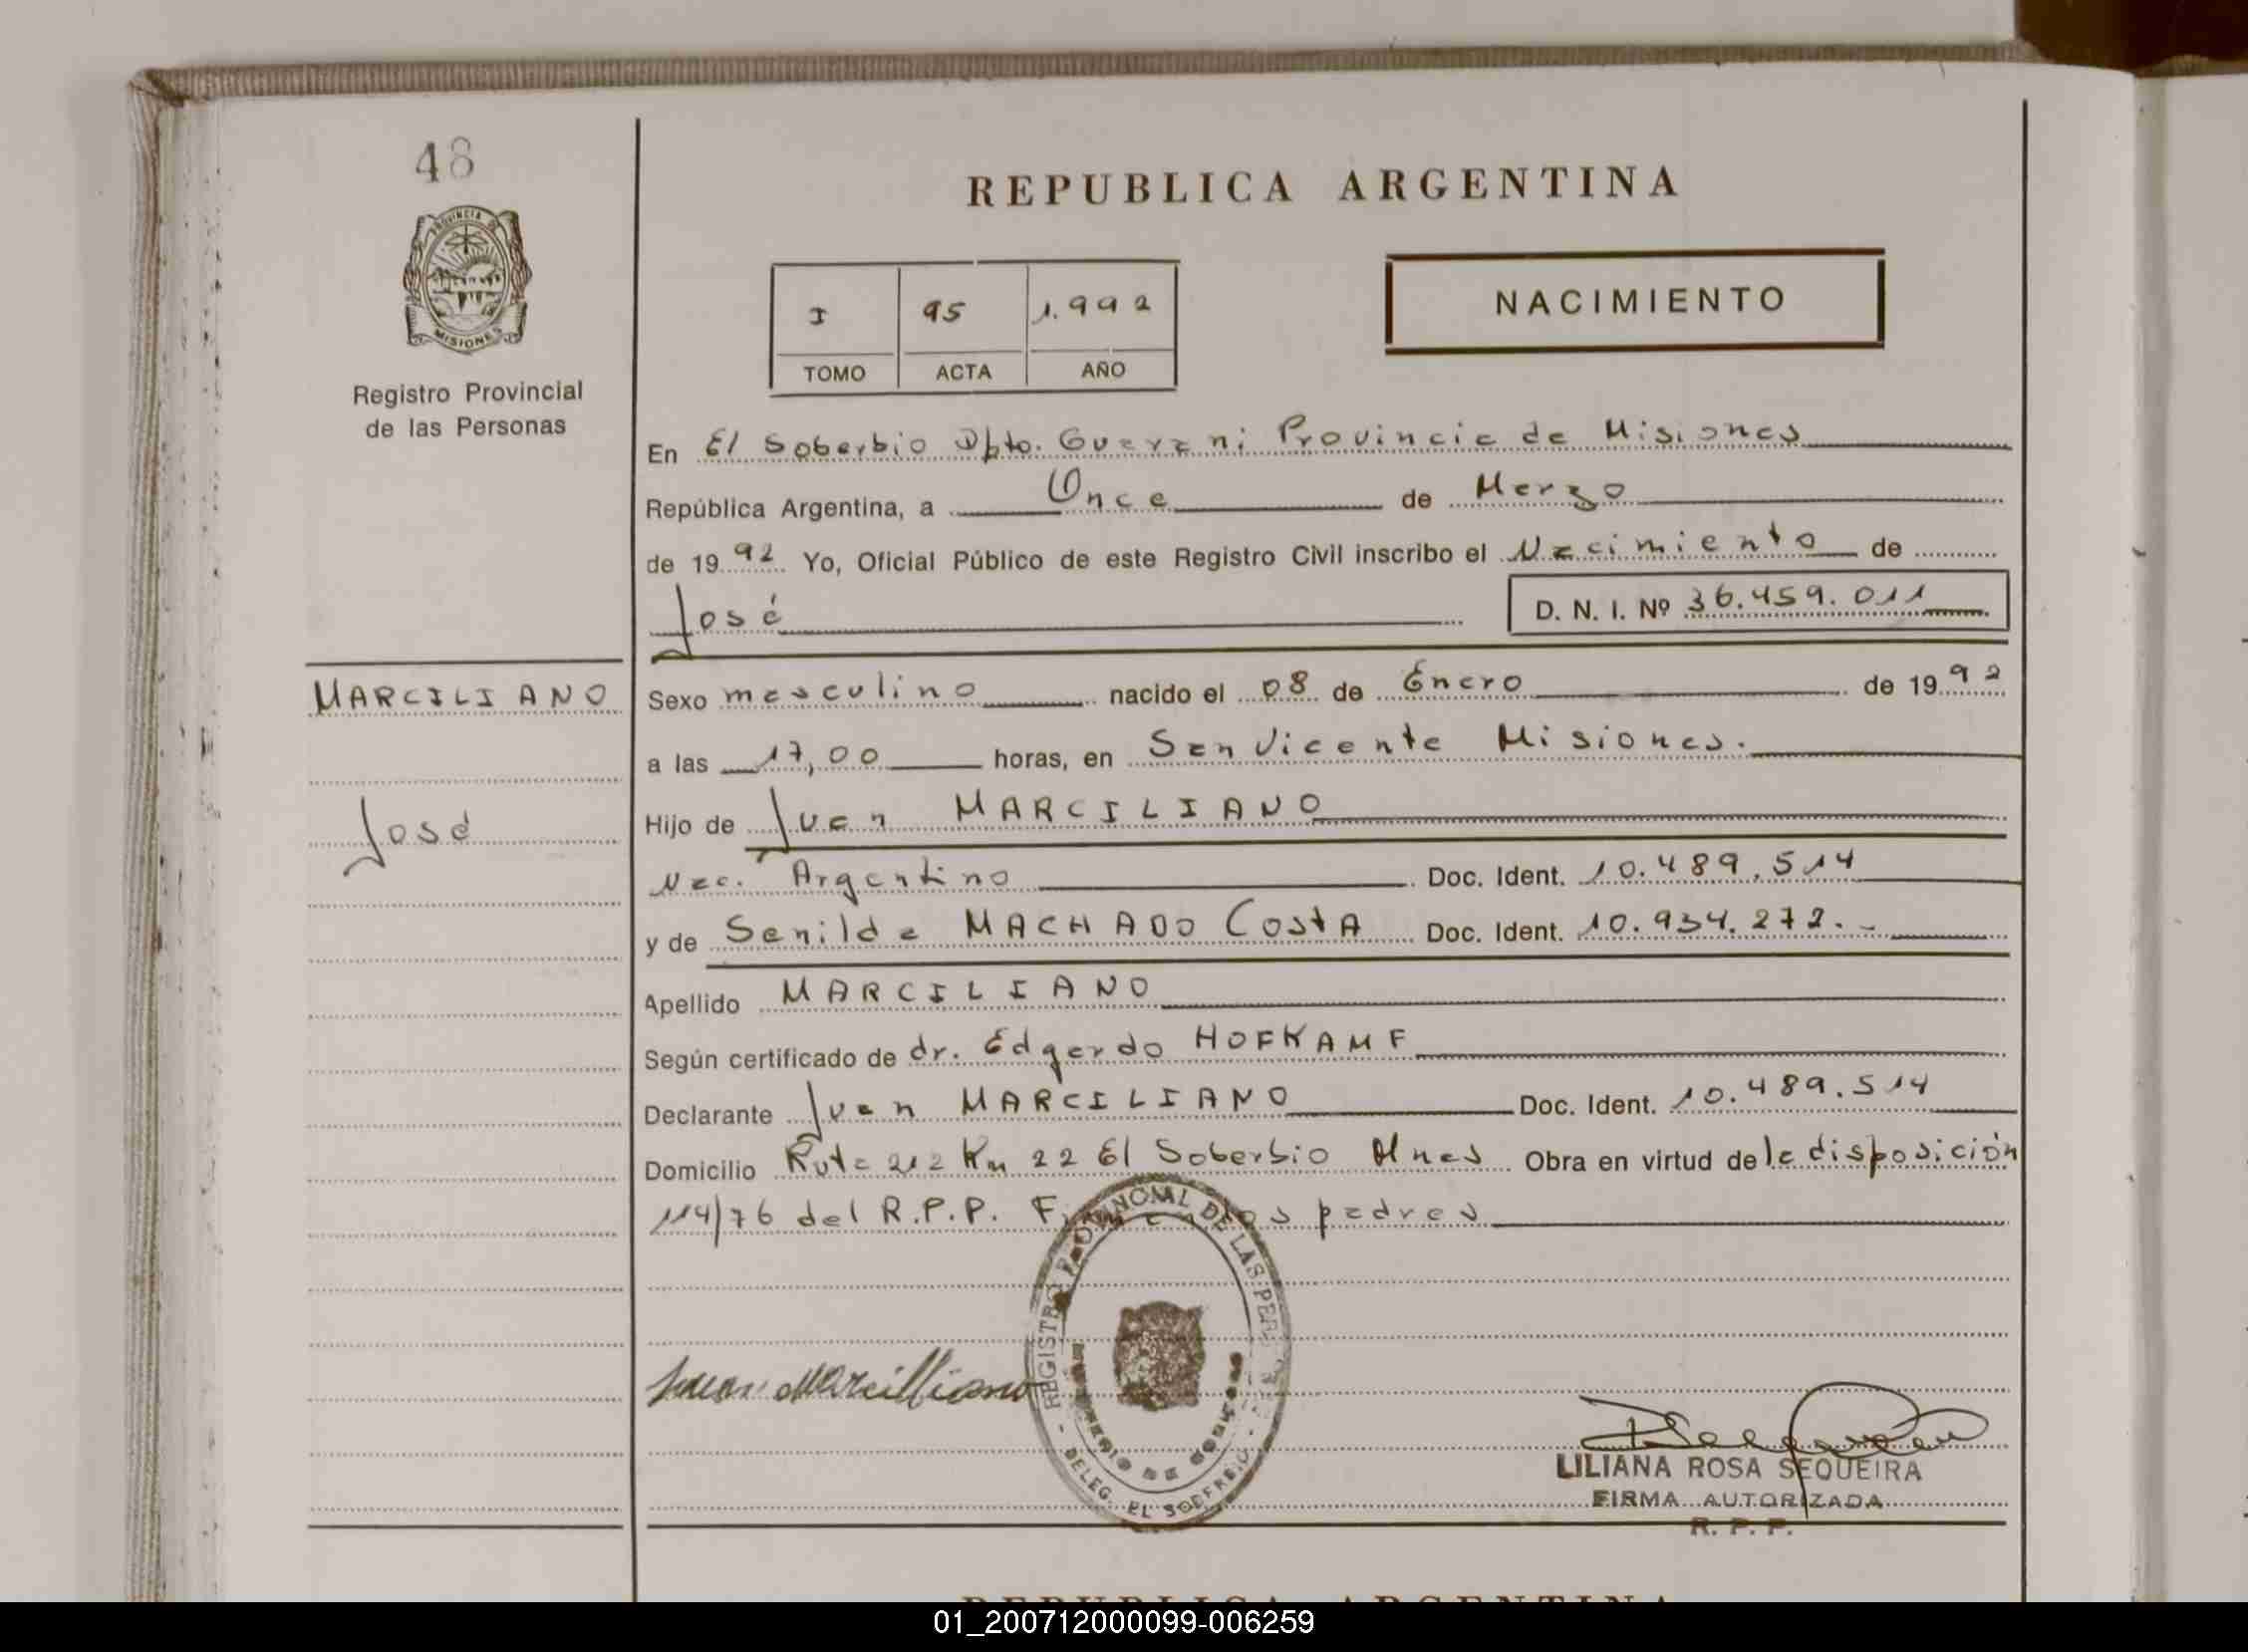 48
PROVINCIA DE
MISIONES
Registro Provincial
de las Personas
REPUBLICA ARGENTINA
I 95 1.992
TOMO ACTA AÑO
NACIMIENTO
En El Soberbio Dpto. Guarani Provincia de Misiones
República Argentina, a Once de Marzo
de 1992 Yo, Oficial Público de este Registro Civil inscribo el Nacimiento de
José D. N. I. Nº 36.459.011
MARCILIANO
José
Sexo masculino nacido el 08 de Enero de 1992
a las 17,00 horas, en San Vicente Misiones.
Hijo de Juan MARCILIANO
Nac. Argentino Doc. Ident. 10.489.514
y de Senilda MACHADO COSTA Doc. Ident. 10.934.272.-
Apellido MARCILIANO
Según certificado de dr. Edgardo HOFKAMF
Declarante Juan MARCILIANO Doc. Ident. 10.489.514
Domicilio Ruta 212 Km 22 El Soberbio Mnes Obra en virtud de la disposición
114/76 del R.P.P. Firman los padres
REGISTRO PROVINCIAL DE LAS PER
DELEG. EL SOBERBIO
Juan Marcilliano
LILIANA ROSA SEQUEIRA
FIRMA AUTORIZADA
R. P. P.
REPUBLICA ARGENTINA
01_200712000099-006259